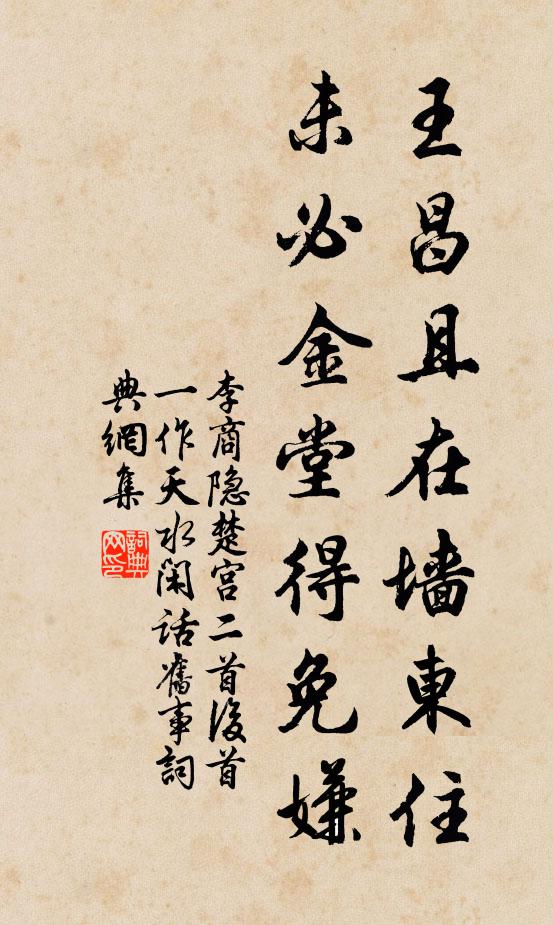 王昌且在墙東住
未必金堂得免嫌
李商隐楚宫二首後首
一作天水閑話舊事詞
典網集
詞典网印